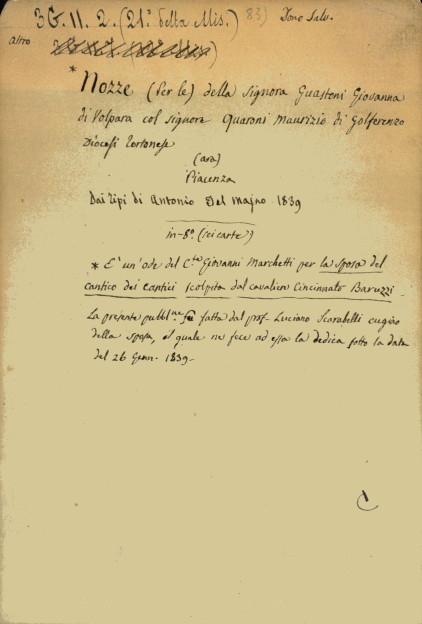 3G. II. 2. (21ª della Mis.) 83) Dono Salv.
altro
* Nozze (Per le) della Signora Guastoni Giovanna
di Volpara col signore Quaroni Maurizio di Golferenzo
Diocesi Tortonese
(ara)
Piacenza
Dai Tipi di Antonio Del Majno 1839
in-8º. (sei carte)
* E' un'ode del C.te Giovanni Marchetti per la sposa del
cantico dei cantici scolpita dal cavaliere Cincinnato Baruzzi.
La presente pubbl.ne fu fatta dal prof. Luciano Scarabelli cugino
della sposa, il quale ne fece ad essa la dedica sotto la data
del 26 Genn. 1839.